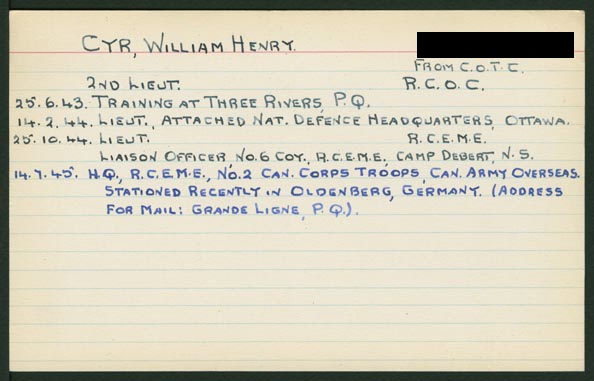 CYR, WILLIAM HENRY.
FROM C.O.T.C.
2ND LIEUT. R.C.O.C.
25.6.43. TRAINING AT THREE RIVERS, P.Q.
14.2.44. LIEUT., ATTACHED NAT. DEFENCE HEADQUARTERS, OTTAWA.
25.10.44. LIEUT. R.C.E.M.E.
LIAISON OFFICER, NO.6 COY., R.C.E.M.E., CAMP DEBERT, N.S.
14.7.45. H.Q., R.C.E.M.E., NO.2 CAN. CORPS TROOPS, CAN. ARMY OVERSEAS.
STATIONED RECENTLY IN OLDENBERG, GERMANY. (ADDRESS
FOR MAIL: GRANDE LIGNE, P.Q.).